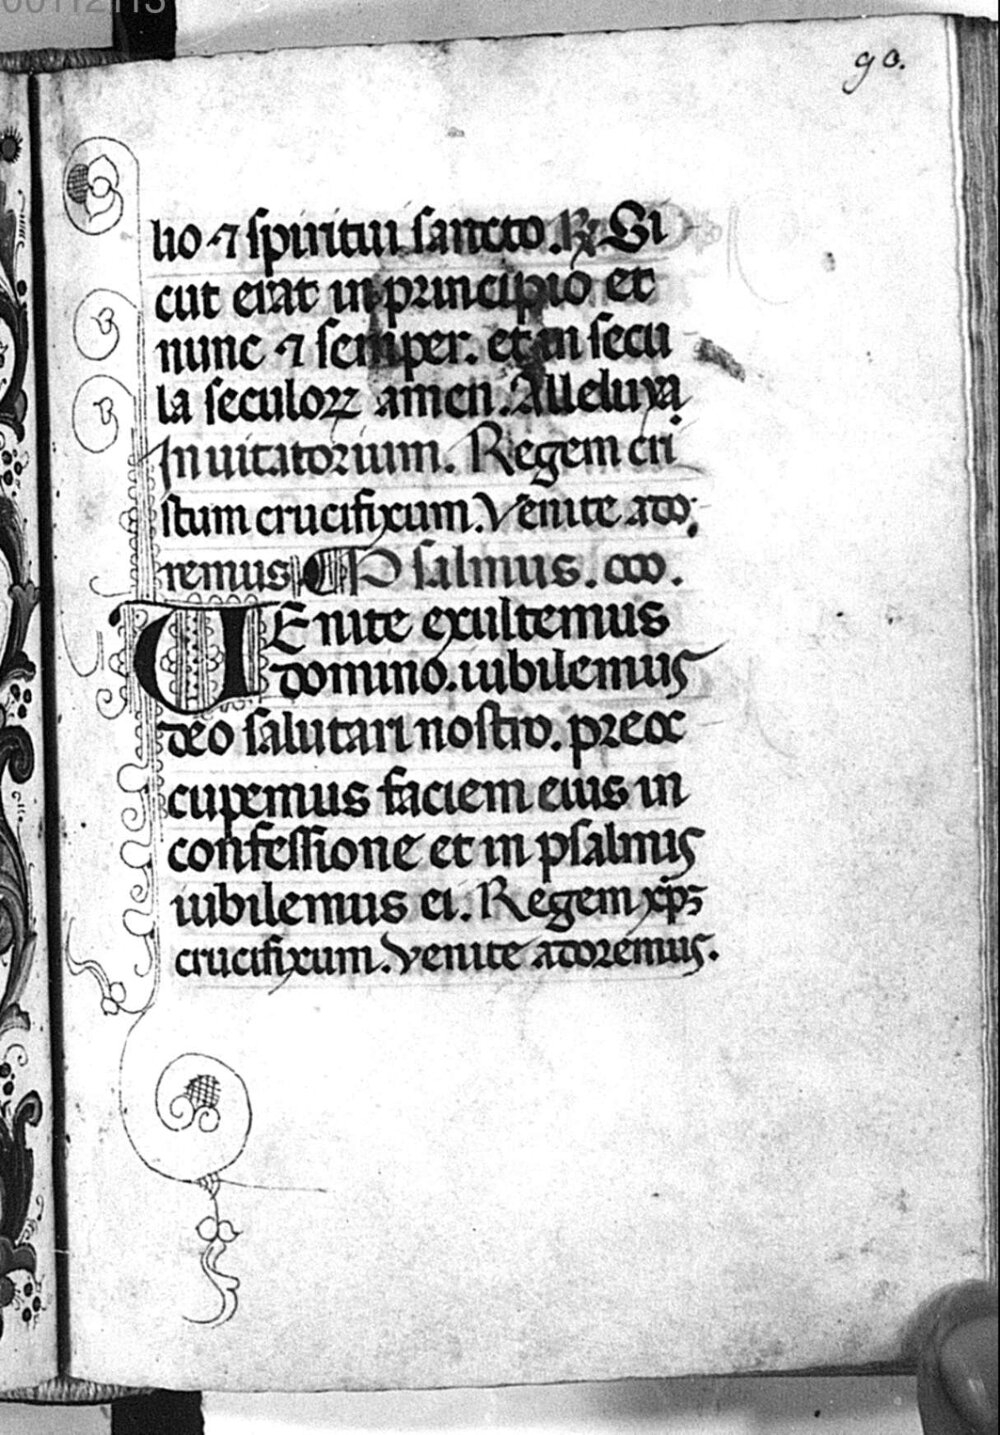 00112113
90.
lio ⁊ spiritui sancto. ℟ Si
cut erat in principio et
nunc ⁊ semper. et in secu
la seculoꝝ amen. Alleluya
Inuitatorium. Regem cri
stum crucifixum. Venite ado
remus. Psalmus.
VEnite exultemus
domino. iubilemus
deo salutari nostro. preoc
cupemus faciem eius in
confessione et in psalmis
iubilemus ei. Regem xp̄ꝫ
crucifixum. Venite adoremus.